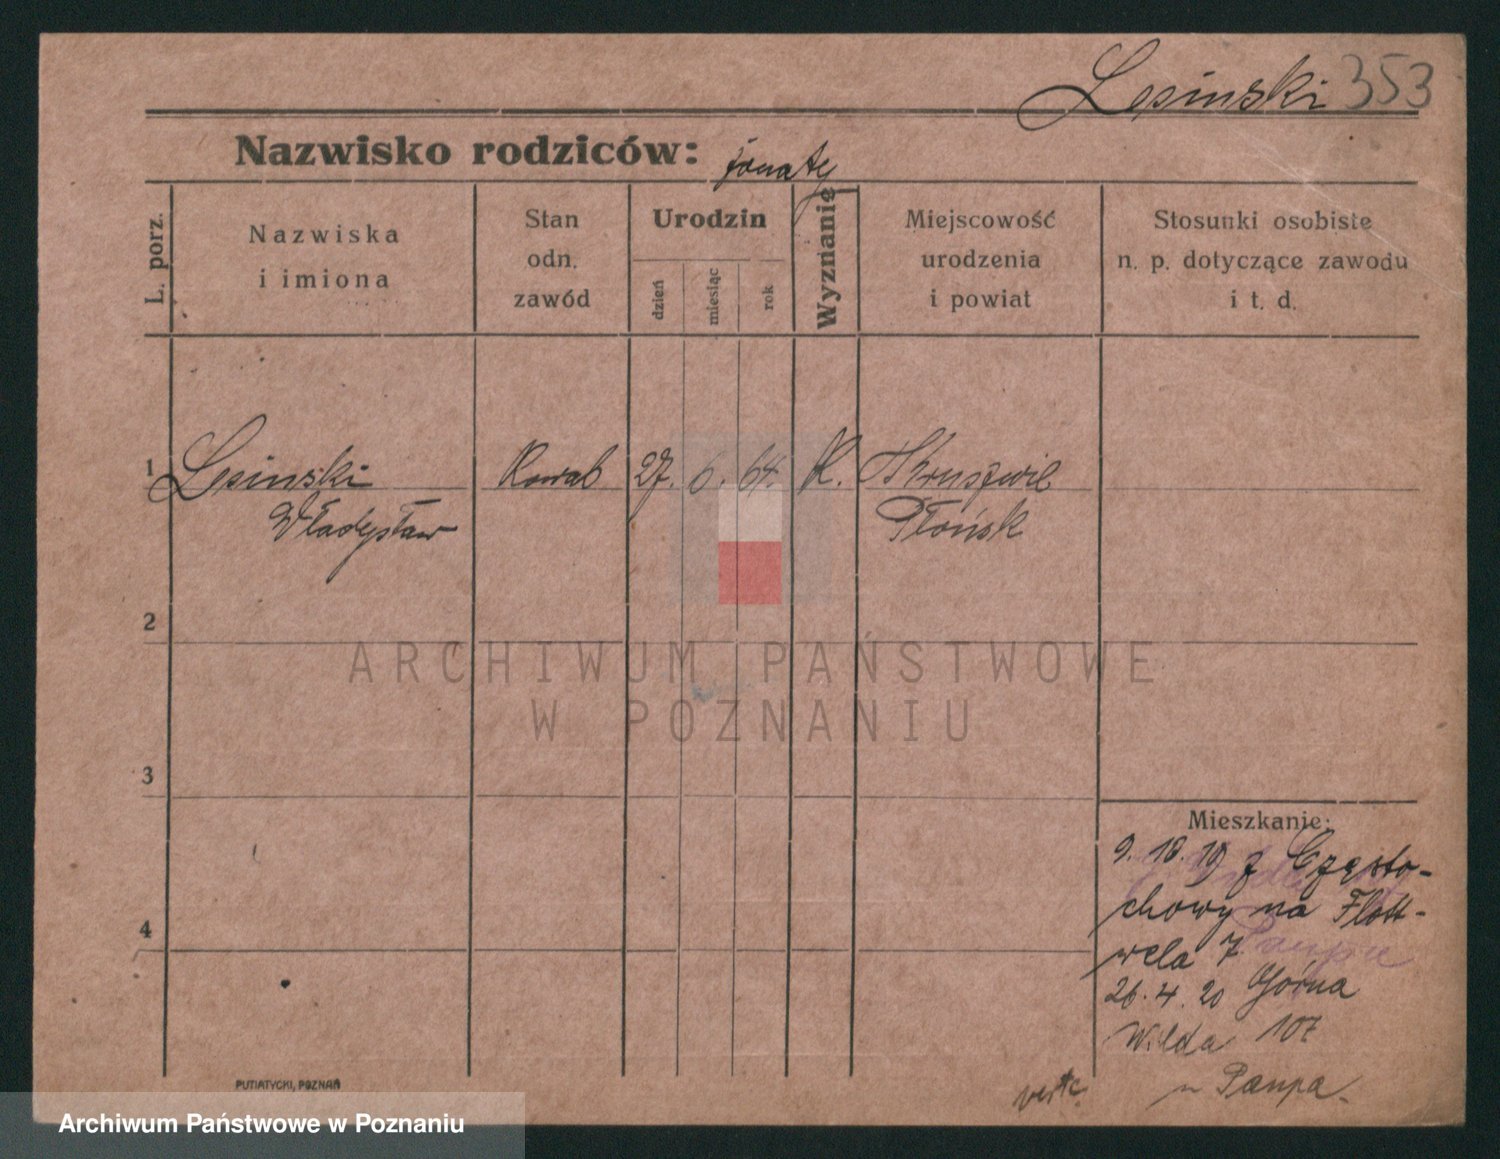 Lesinski 353
Nazwisko rodziców: żonaty
L. porz.
Nazwiska
i imiona
Stan
odn.
zawód
Urodzin
dzień
miesiąc
rok
Wyznanie
Miejscowość
urodzenia
i powiat
Stosunki osobiste
n. p. dotyczące zawodu
i t. d.
1 Lesinski Kowal 27. 6. 64. K.
Władysław Płońsk
2
ARCHIWUM PAŃSTWOWE
W POZNANIU
3
Mieszkanie:
9. 10. 19 z Często-
chowy na Flott-
wela 7.
4
26. 4. 20 Górna
Wilda 107
PUTIATYCKI, POZNAŃ
Archiwum Państwowe w Poznaniu